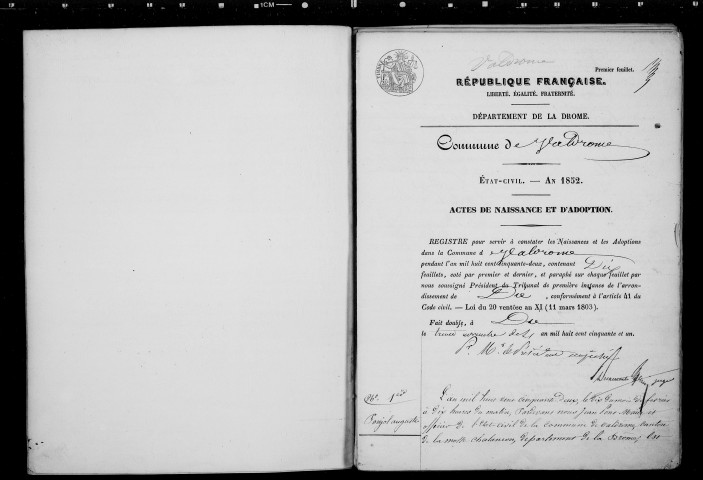 1CM
Valdrome
Premier feuillet.
RÉPUBLIQUE FRANÇAISE.
LIBERTÉ. ÉGALITÉ. FRATERNITÉ.
DÉPARTEMENT DE LA DROME.
Commune de Valdrome
ÉTAT-CIVIL. — AN 1852.
ACTES DE NAISSANCE ET D'ADOPTION.
REGISTRE pour servir à constater les Naissances et les Adoptions
dans la Commune d e Valdrome
pendant l'an mil huit cent cinquante-deux, contenant Dix
feuillets, coté par premier et dernier, et paraphé sur chaque feuillet par
nous soussigné Président du Tribunal de première instance de l'arron-
dissement de Die, conformément à l'article 41 du
Code civil. — Loi du 20 ventôse an XI (11 mars 1803).
Fait double, à Die
le an mil huit cent cinquante et un.
Pr. Mr. le Président empêché
N°. 1er
auguste
L'an mil huit cent cinquante deux, le dix du mois de
à dix heures du matin, Pardevant nous jean
officier de l'état civil de la commune de valdrome, canton
de la motte chalancon, département de la Drome,